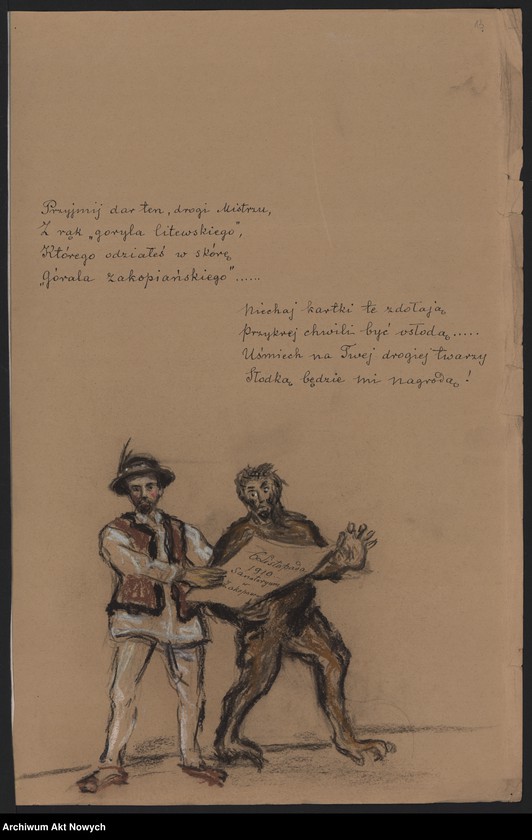 Przyjmij dar ten, drogi Mistrzu,
Z rąk „goryla litewskiego",
Którego odziałeś w skórę
„Górala zakopiańskiego"......
Niechaj kartki te zdołają
Przykrej chwili być osłodą.....
Uśmiech na Twej drogiej twarzy
Słodką będzie mi nagrodą!
6 Listopada
1910
Sanatoryum
Zakopane
Archiwum Akt Nowych